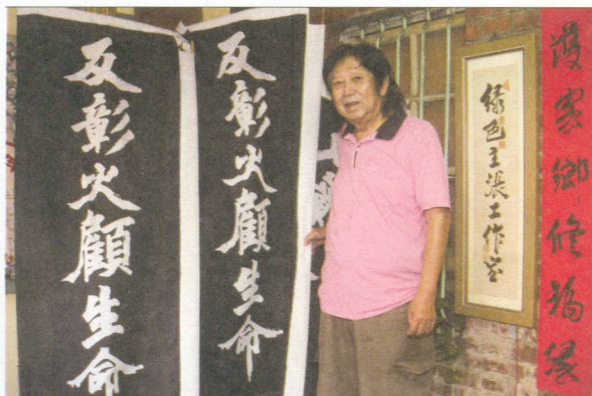 反彰火顧生命
反彰火顧生命
綠色主張工作室
護家鄉修福緣